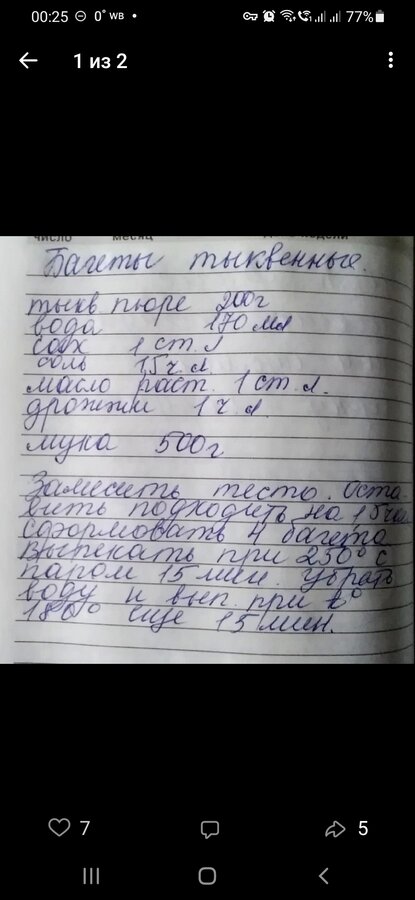 00:25 0° WB 77%
1 из 2
число месяц
Багеты тыквенные.
тыкв. пюре 200г
вода 170 мл
сах 1 ст. л
соль 1,5 ч. л.
масло раст. 1 ст. л.
дрожжи 1 ч. л.
мука 500г
Замесить тесто. Оста
вить подходить на 1,5 час
сформовать 4 багета
Выпекать при 250° с
паром 15 мин. Убрать
воду и вып. при t°
180° еще 15 мин.
7 5